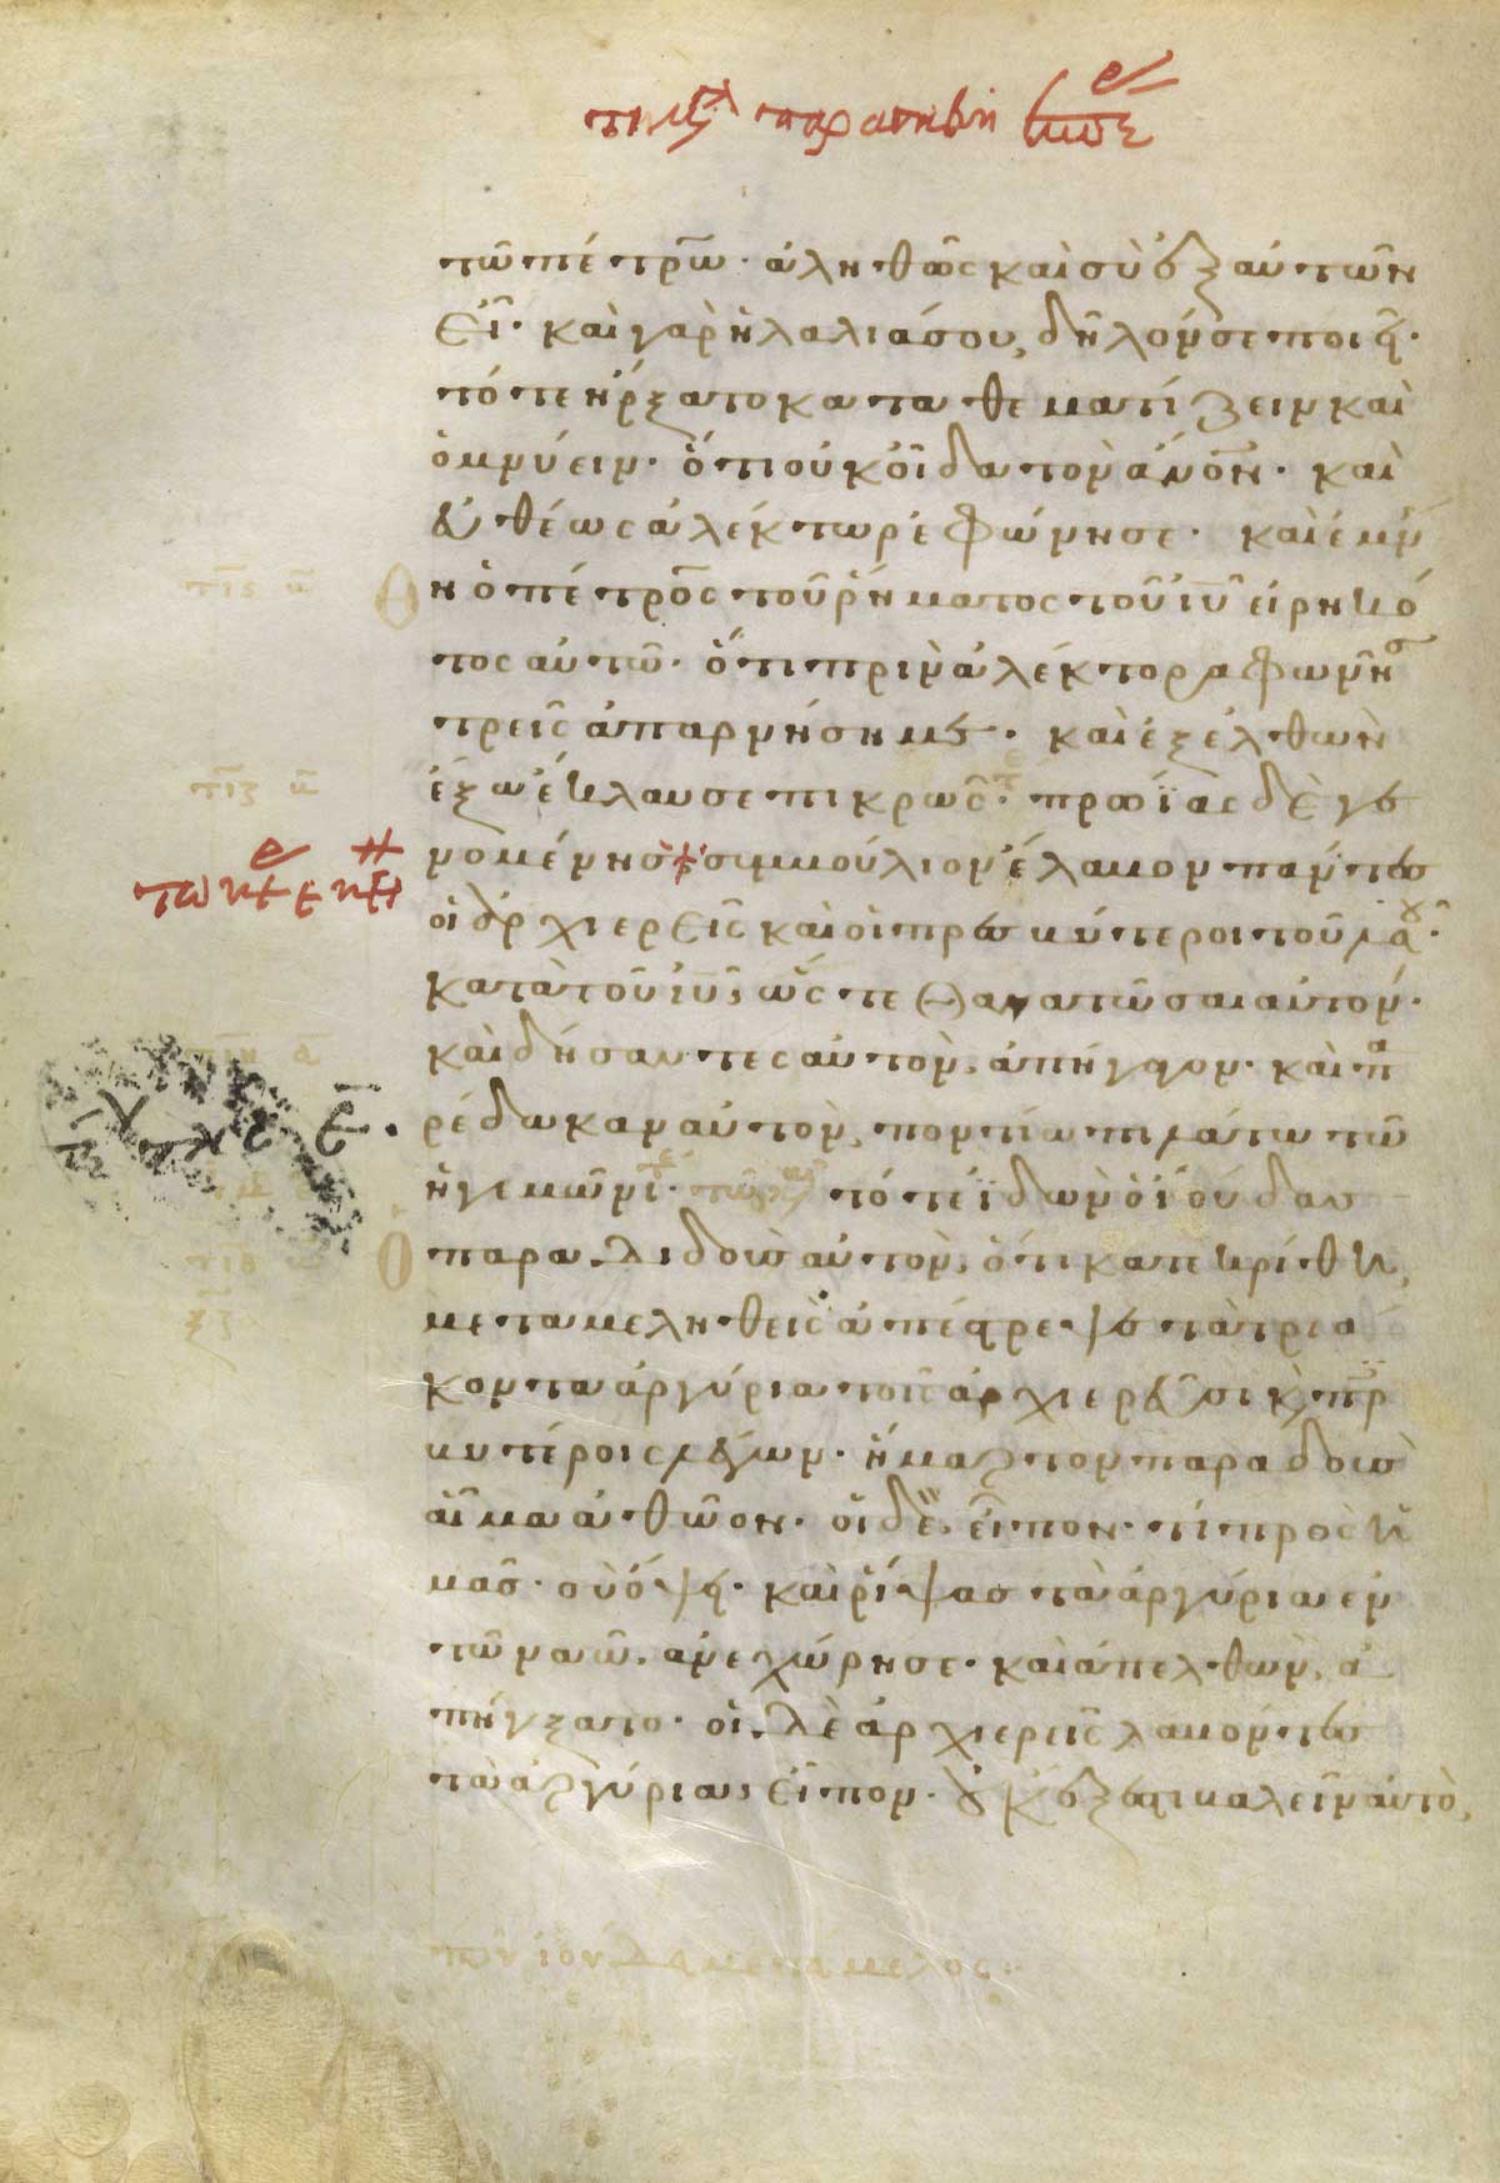 τῶ πέτρω· ἀληθῶς καὶ σὺ ἐξ αὐτῶν
εἶ· καὶ γὰρ ἡ λαλιά σου, δῆλόν σε ποιεῖ·
τότε ἤρξατο καταθεματίζειν καὶ
ὀμνύειν· ὅτι οὐκ οἶδα τὸν ἄνον· καὶ
εὐθέως ἀλέκτωρ ἐφώνησε· καὶ ἐμν
ή ὁ πέτρος τοῦ ῥήματος τοῦ ιυ εἰρηκό
τος αὐτῶ· ὅτι πρὶν ἀλέκτορα φωνῆσ
τρεῖς ἀπαρνήση με· καὶ ἐξελθὼν
ἔξω ἔκλαυσε πικρῶς· πρωΐας δὲ γε
νομένης συμβούλιον ἔλαβον πάντες
οἱ ἀρχιερεῖς καὶ οἱ πρεσβύτεροι τοῦ λαοῦ·
κατὰ τοῦ ιυ, ὥστε θανατῶσαι αὐτόν·
καὶ δήσαντες αὐτὸν, ἀπήγαγον· καὶ πα
ρέδωκαν αὐτὸν, ποντίω πιλάτω τῶ
ἡγεμῶνι· τότε ἰδὼν ὁ ἰούδας
ὁ παραδιδοὺς αὐτὸν, ὅτι κατεκρίθη,
μεταμεληθεὶς ἀπέστρεψε τὰ τριά
κοντα ἀργύρια τοῖς ἀρχιερεῦσι κ πρ
βυτέροις λέγων· ἥμαρτον παραδοὺς
αἷμα ἀθῶον· οἱ δὲ, εἶπον· τί πρὸς ἡ
μᾶς· σὺ ὄψει· καὶ ῥίψας τὰ ἀργύρια ἐν
τῶ ναῶ, ἀνεχώρησε· καὶ ἀπελθὼν, ἀ
πήγξατο· οἱ δὲ ἀρχιερεῖς λαβόντες
τὰ ἀργύρια, εἶπον· οὐκ ἔξεστι βαλεῖν αὐτὰ,